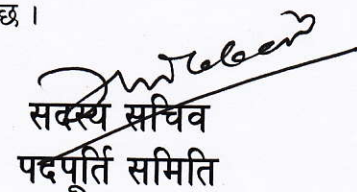 छ ।
सदस्य सचिव
पदपूर्ति समिति